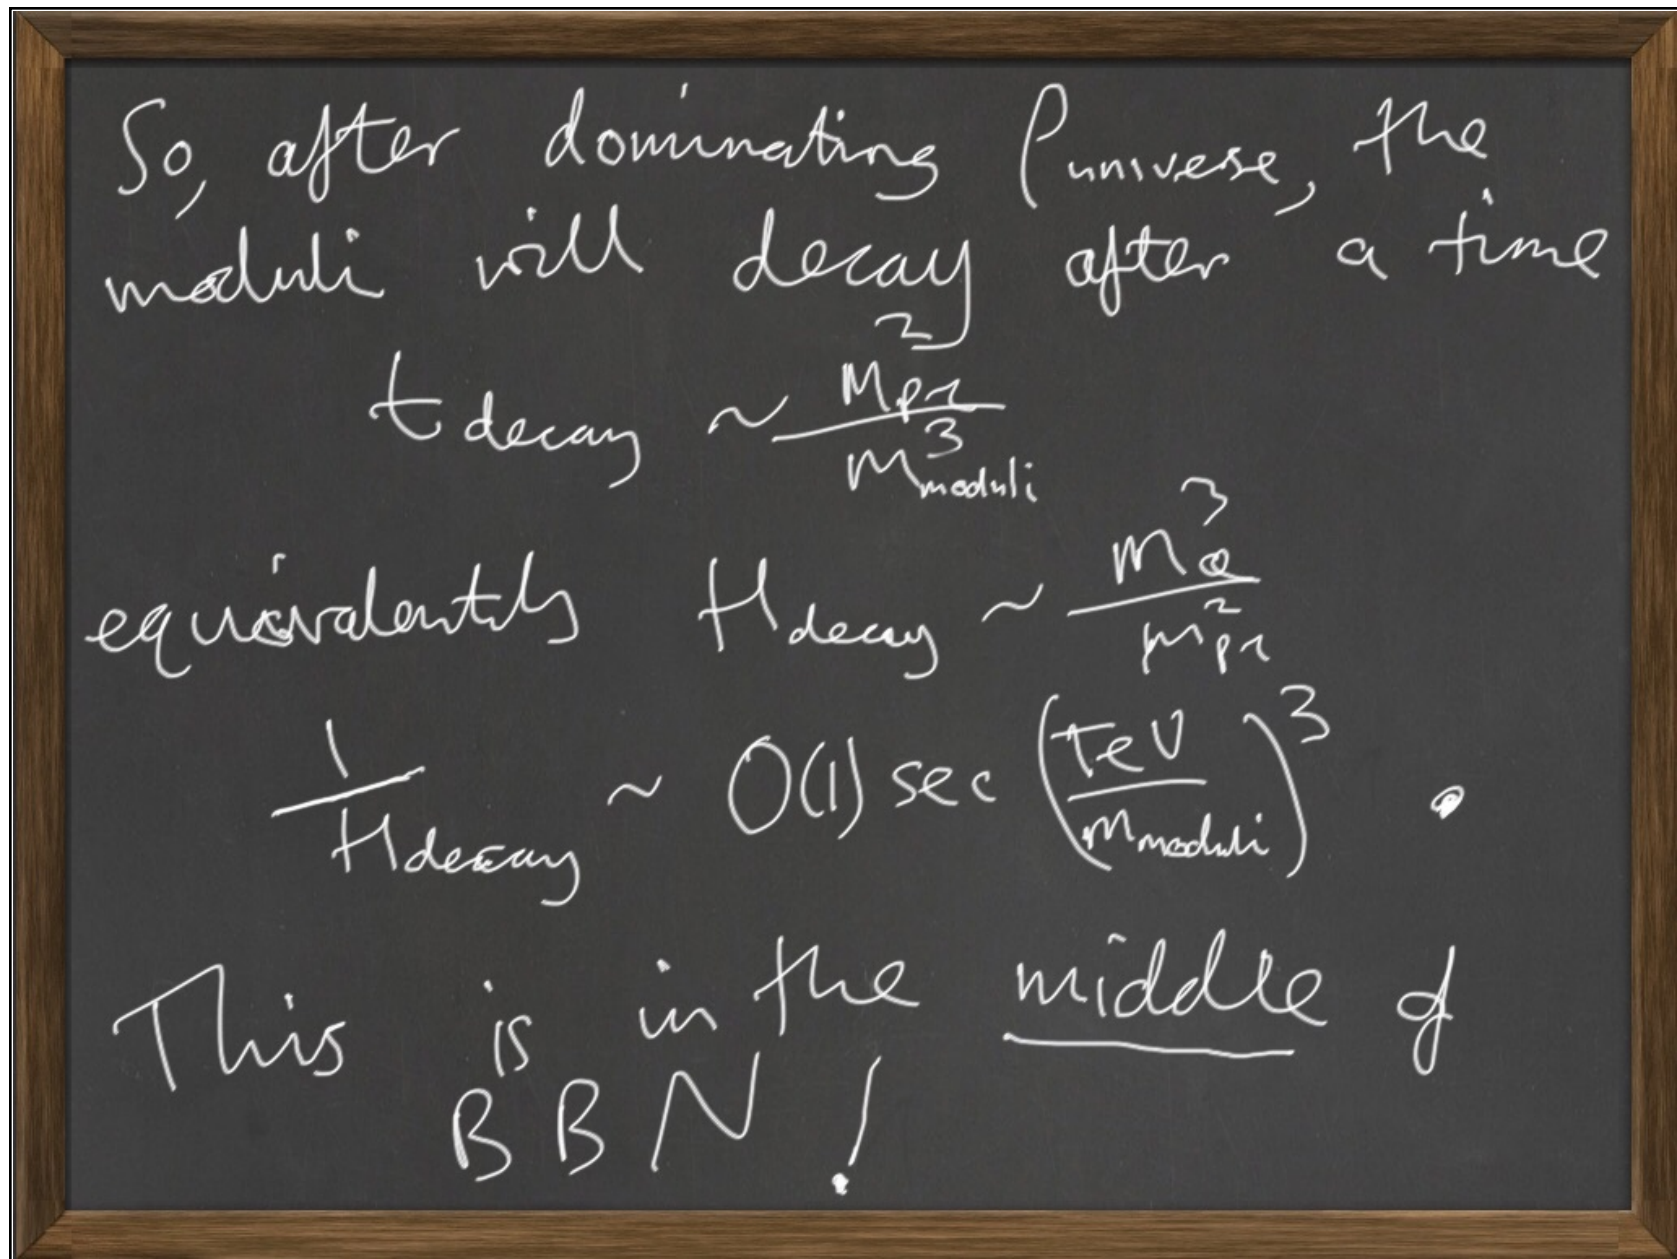 So, after dominating ρ_universe, the
moduli will decay after a time
t_decay ~ m_pl^2 / m_moduli^3
equivalently H_decay ~ m_φ^3 / m_pl^2
1 / H_decay ~ O(1) sec (TeV / m_moduli)^3 .
This is in the middle of
BBN!